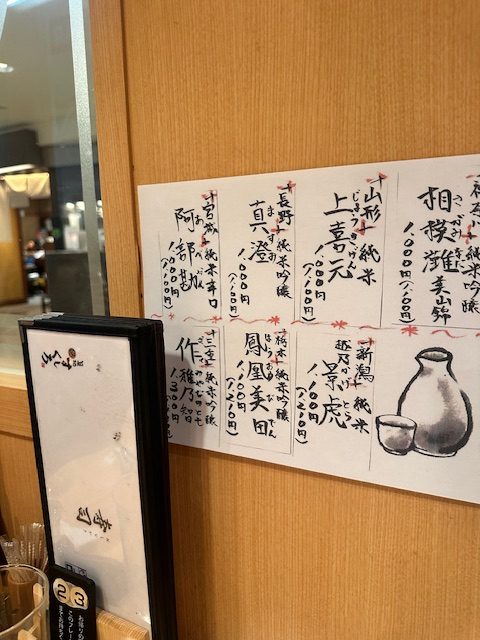 純米吟醸
さがみなだ
相模灘 美山錦
1,000円
(1,100円)
山形 純米
じょうきげん
上喜元
1,000円
(1,100円)
長野 純米吟醸
ますみ
真澄
1,000円
(1,100円)
宮城 純米辛口
あべかん
阿部勘
1,000円
(1,100円)
新潟 純米
越乃かげとら
景虎
1,100円
(1,210円)
栃木 純米吟醸
ほうおうびでん
鳳凰美田
1,100円
(1,210円)
三重 純米吟醸
作 雅乃智
1,300円
寿司
23
お持ちの
このプレー
までお持ち